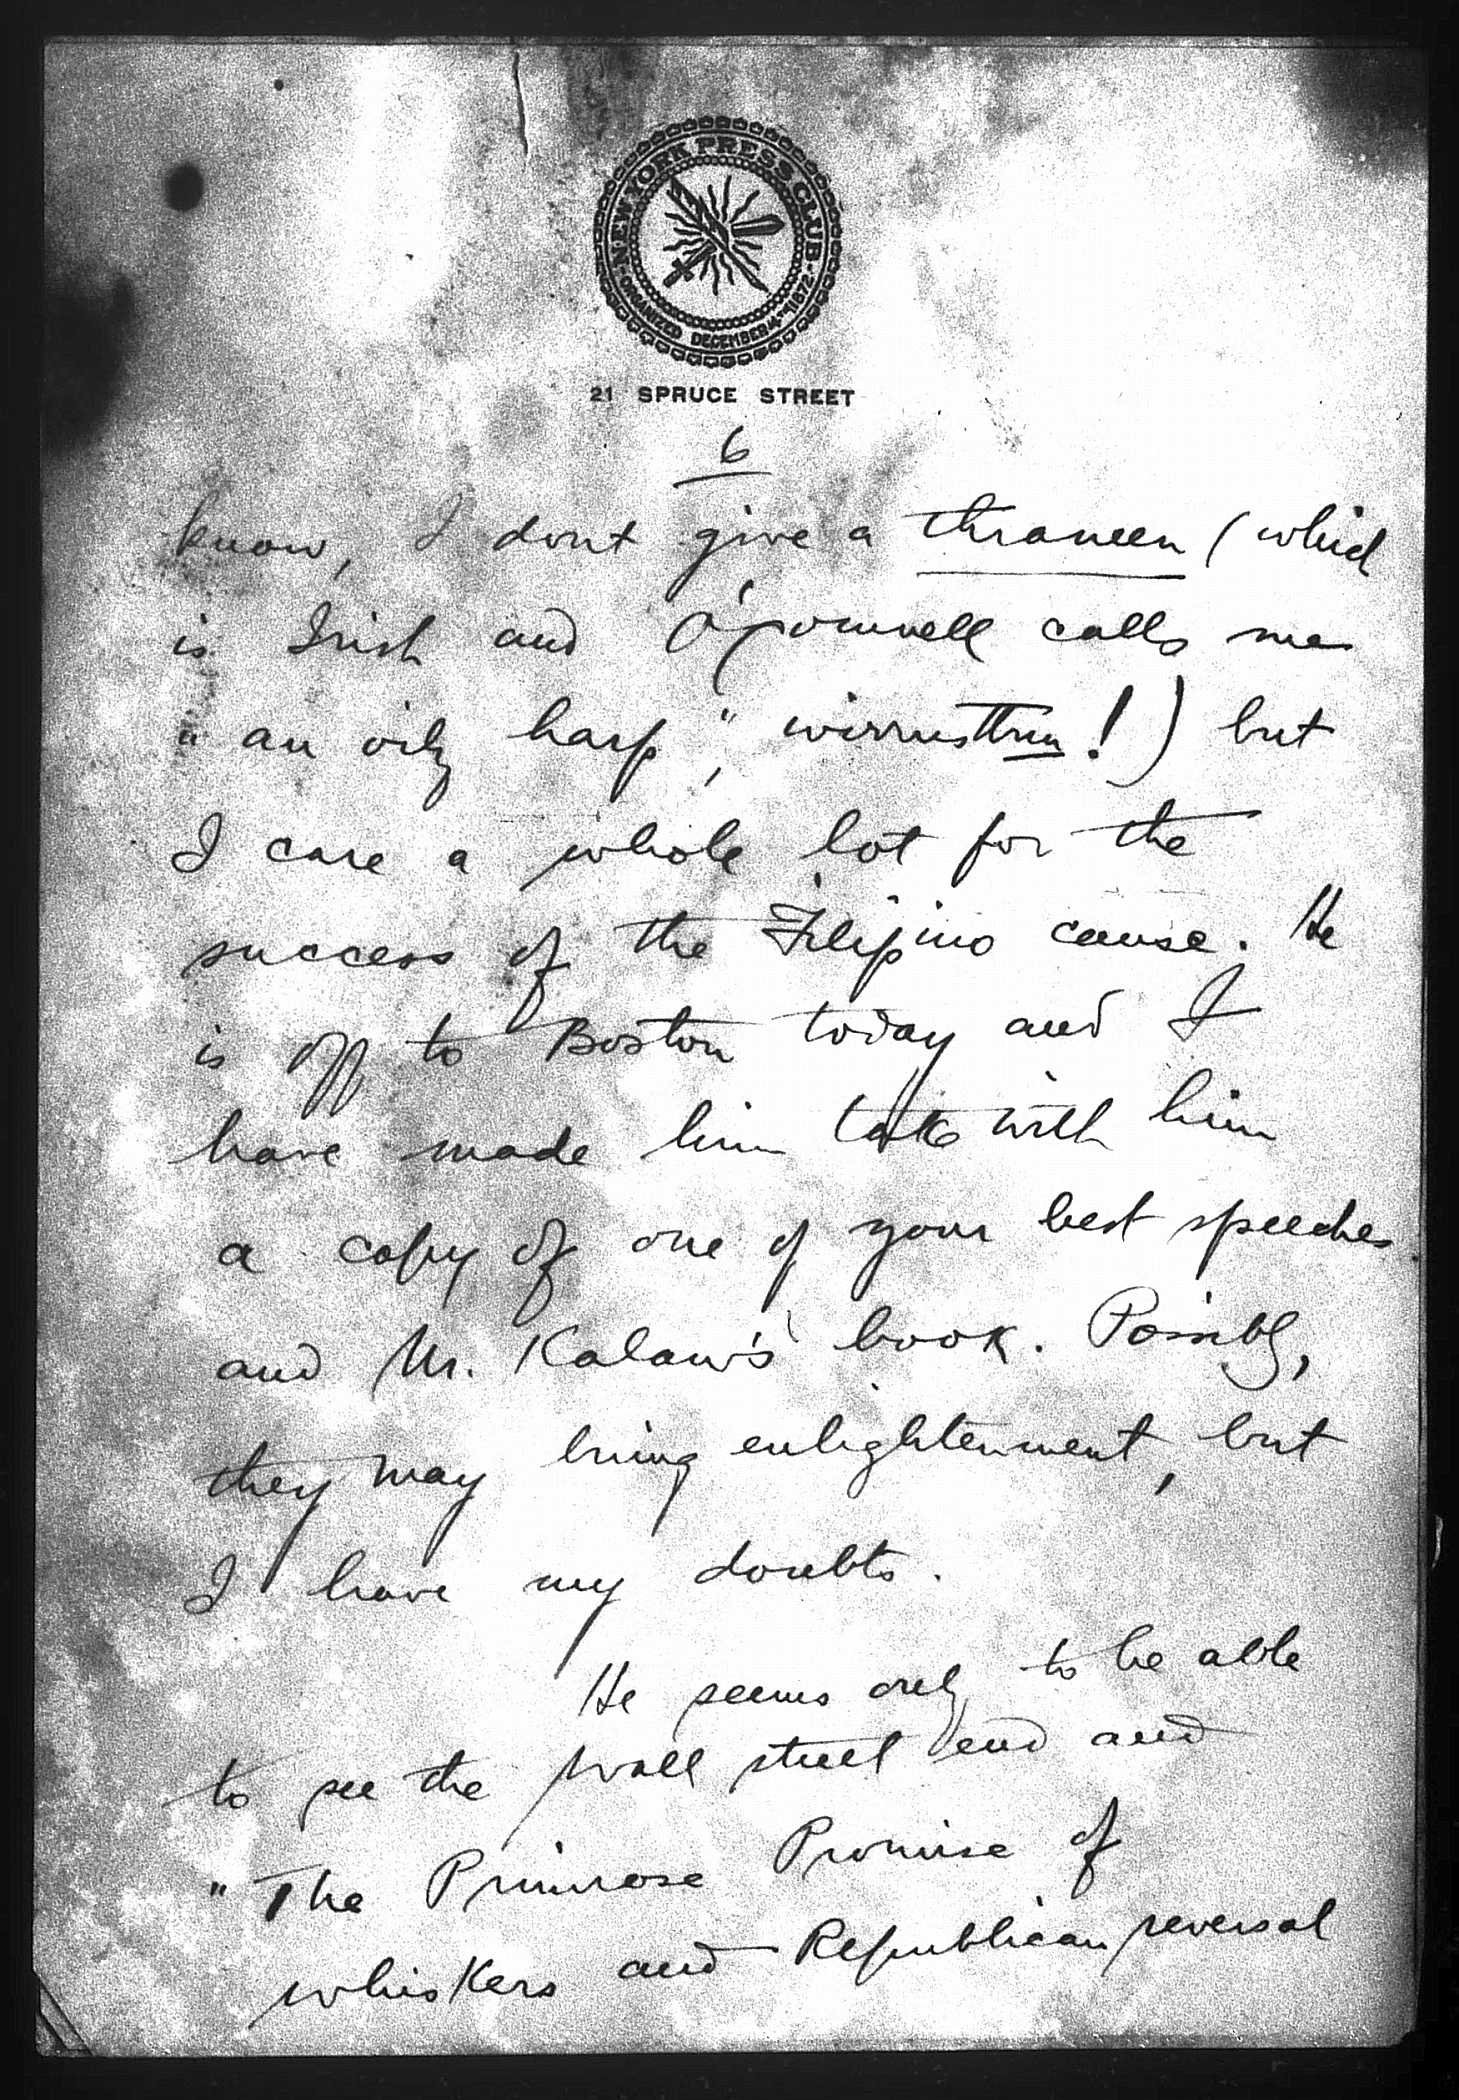 NEW YORK PRESS CLUB
ORGANIZED DECEMBER 4 1872
21 SPRUCE STREET
6
know, I dont give a thraneen (which
is Irish and calls me
"an oily harp," wirrusthru!) but
I care a whole lot for the
success of the Filipino cause. He
is off to Boston today and I
have made him take with him
a copy of one of your best speeches
and Mr. Kalaw's book. Possibly,
they may bring enlightenment, but
I have my doubts.
He seems only to be able
to see the Wall street end and
"The Primrose Promise of
whiskers and Republican reversal